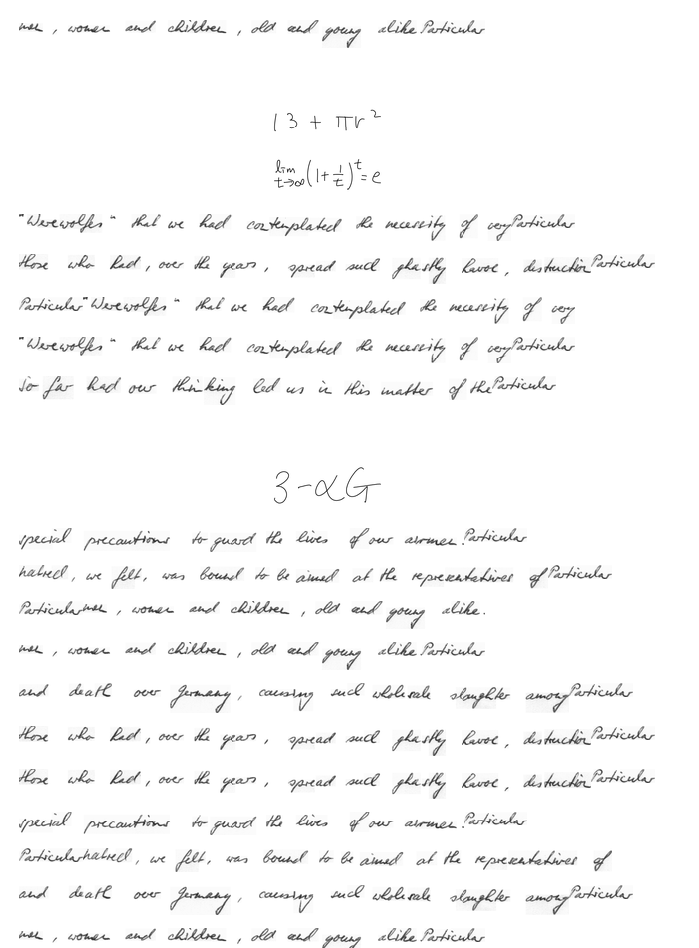 men, women and children, old and young alike Particular
13 + πr²
lim t→∞ (1 + 1/t)^t = e
"Werewolfes" that we had contemplated the necessity of very Particular
those who had, over the years, spread such ghastly havoc, destruction Particular
Particular "Werewolfes" that we had contemplated the necessity of very
"Werewolfes" that we had contemplated the necessity of very Particular
So far had our thinking led us in this matter of the Particular
3 - αG
special precautions to guard the lives of our airmen. Particular
hatred, we felt, was bound to be aimed at the representatives of Particular
Particular men, women and children, old and young alike.
men, women and children, old and young alike Particular
and death over Germany, causing such wholesale slaughter among Particular
those who had, over the years, spread such ghastly havoc, destruction Particular
those who had, over the years, spread such ghastly havoc, destruction Particular
special precautions to guard the lives of our airmen. Particular
Particular hatred, we felt, was bound to be aimed at the representatives of
and death over Germany, causing such wholesale slaughter among Particular
men, women and children, old and young alike Particular